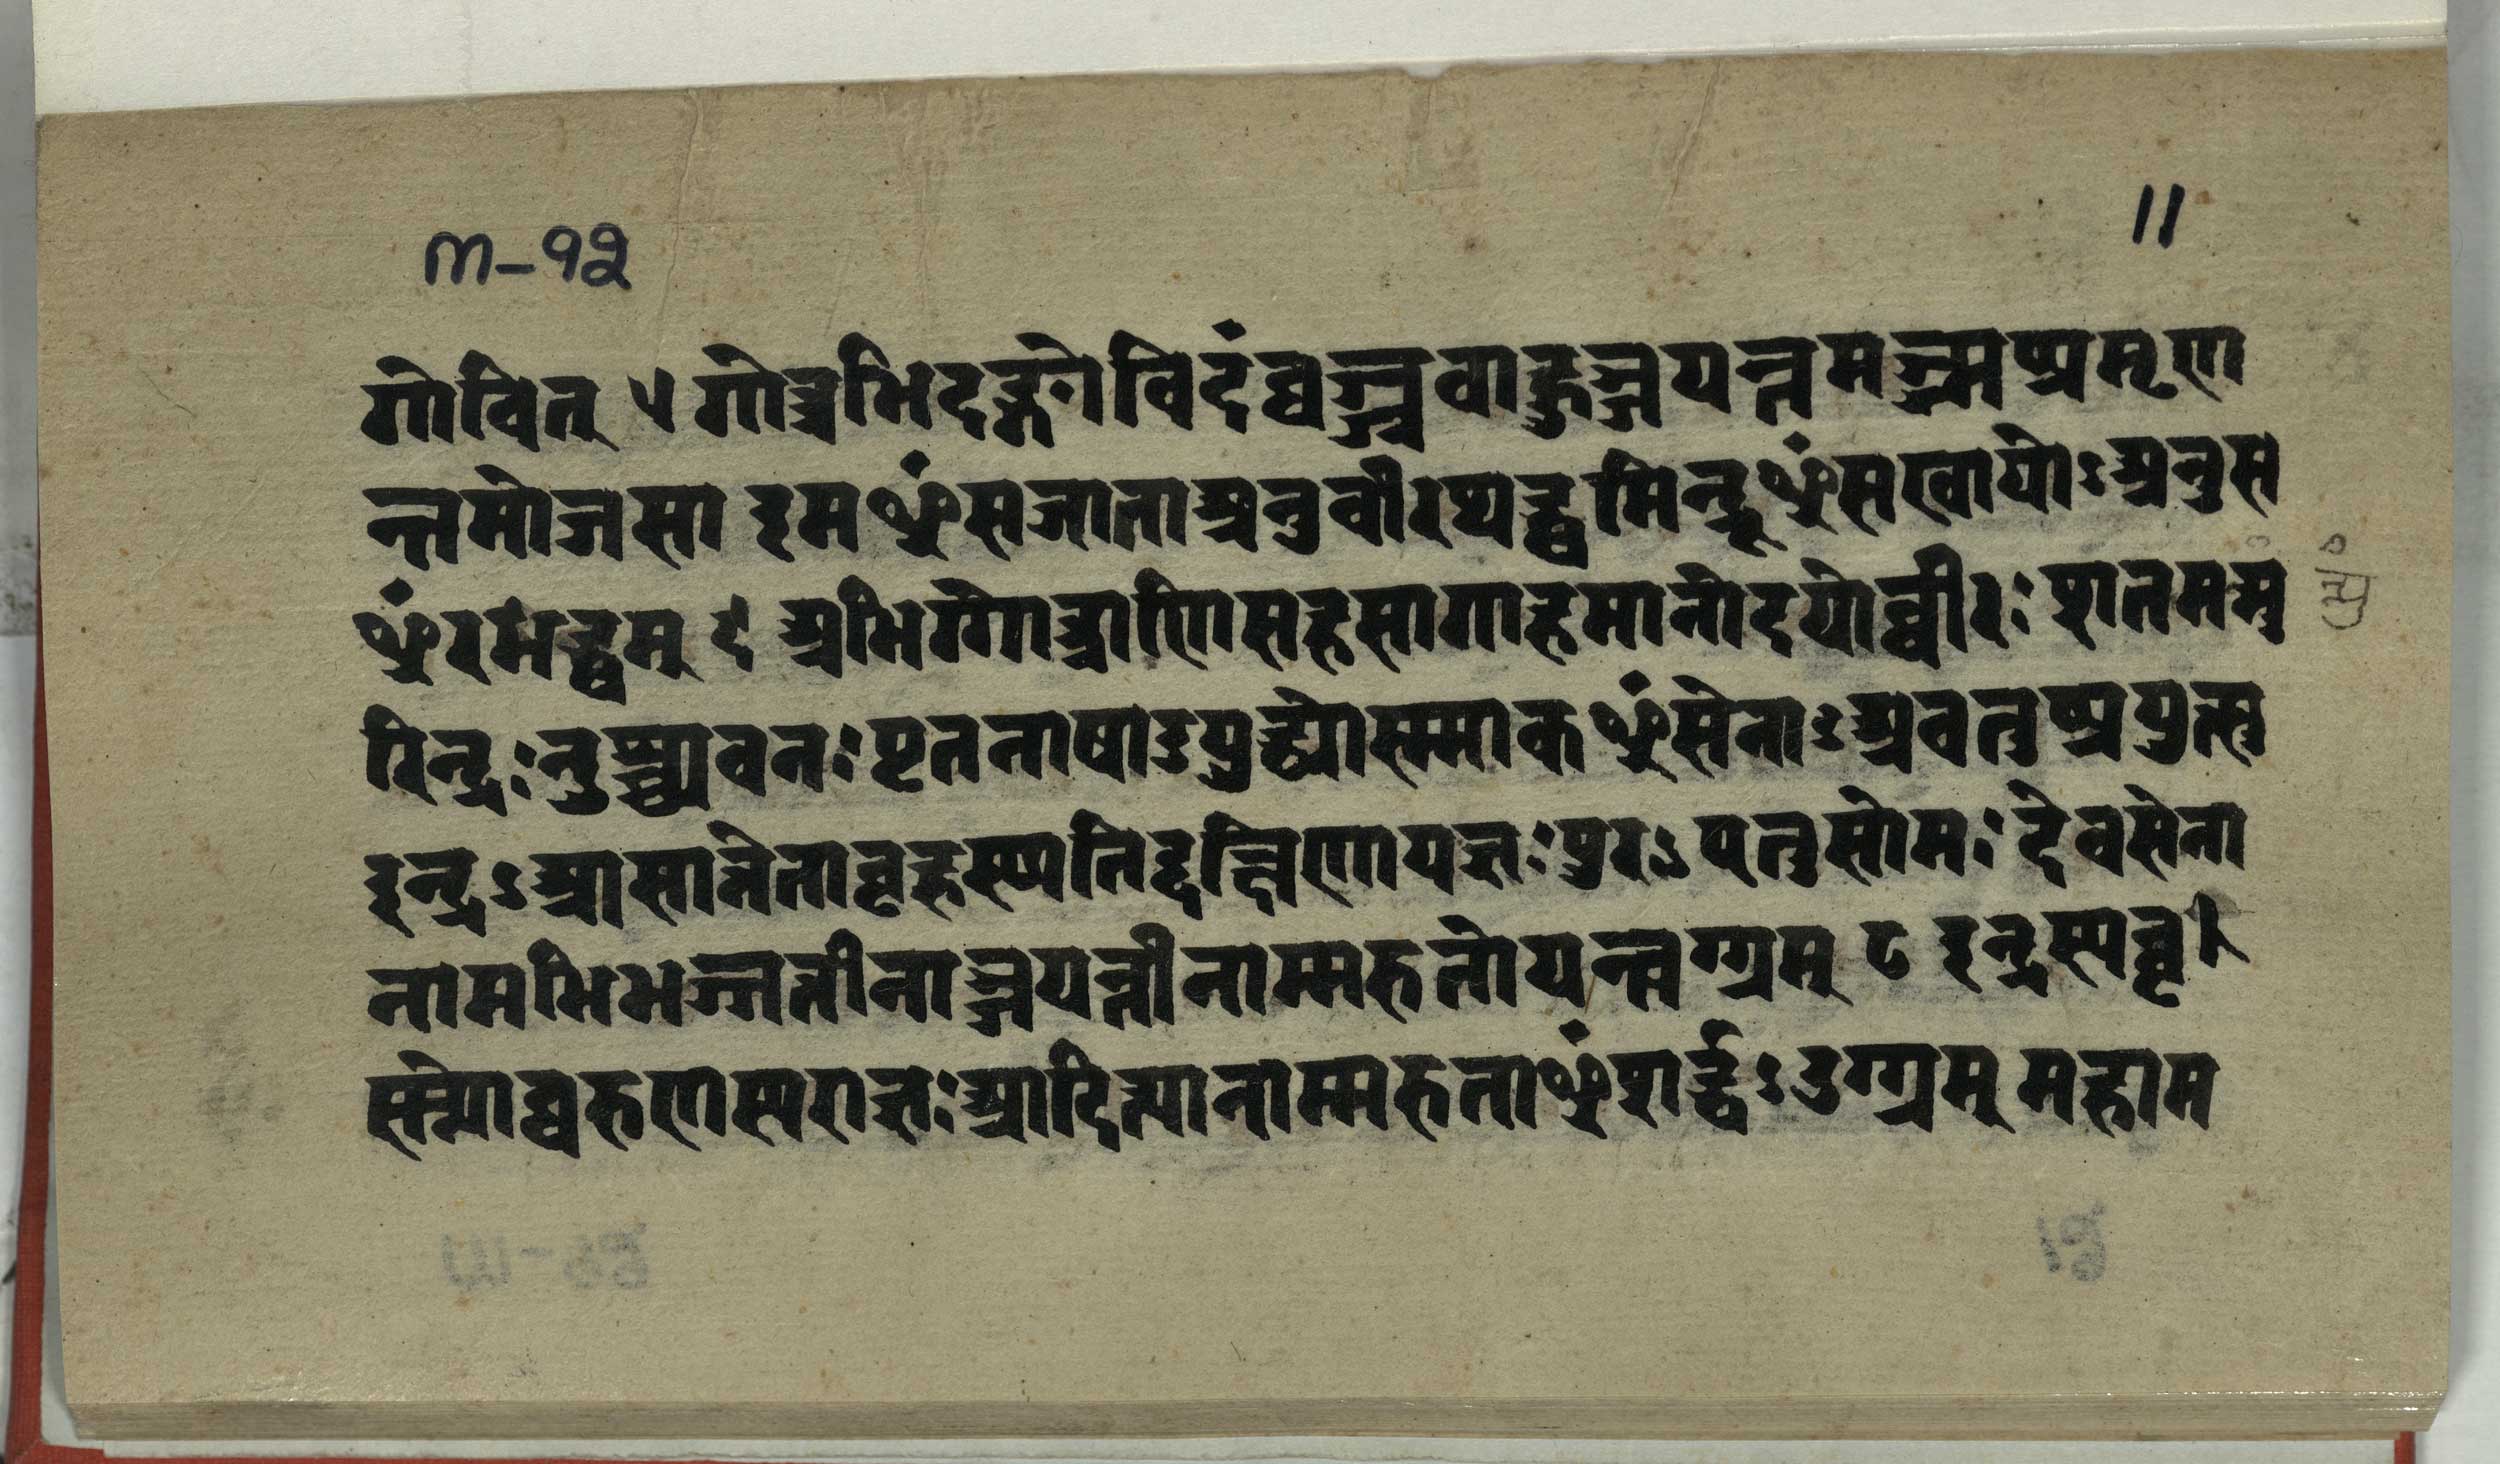 m-१२
11
गोवित् ५ गोत्त्रभिदङ्गोविदंव्वज्ज्रवाहुञ्जयन्तमज्ज्मप्प्रमृण
न्तमोजसा इमᳪंसजाताअनुवीरयद्ध्वमिन्द्रᳪंसखायोऽअनुस
ᳪंरभद्ध्वम् ६ अभिगोत्त्राणिसहसागाहमानोदयोव्वीरःशतमम्न्यु
रिन्द्रःदुश्च्यवनःपृतनाषाडयुद्ध्योस्माकᳪंसेनाऽअवतुप्प्रयुत्सु
इन्द्रऽआसान्नेताबृहस्प्पतिर्द्दक्षिणायज्ञःपुरऽएतुसोमःदेवसेना
नामभिभञ्जतीनाञ्जयन्तीनाम्मरुतोयन्त्वग्ग्रम् ८ इन्द्रस्यवृ
स्ण्णोव्वरुणस्यराज्ञःआदित्यानाम्मरुताᳪंशर्द्धऽउग्ग्रम् महाम